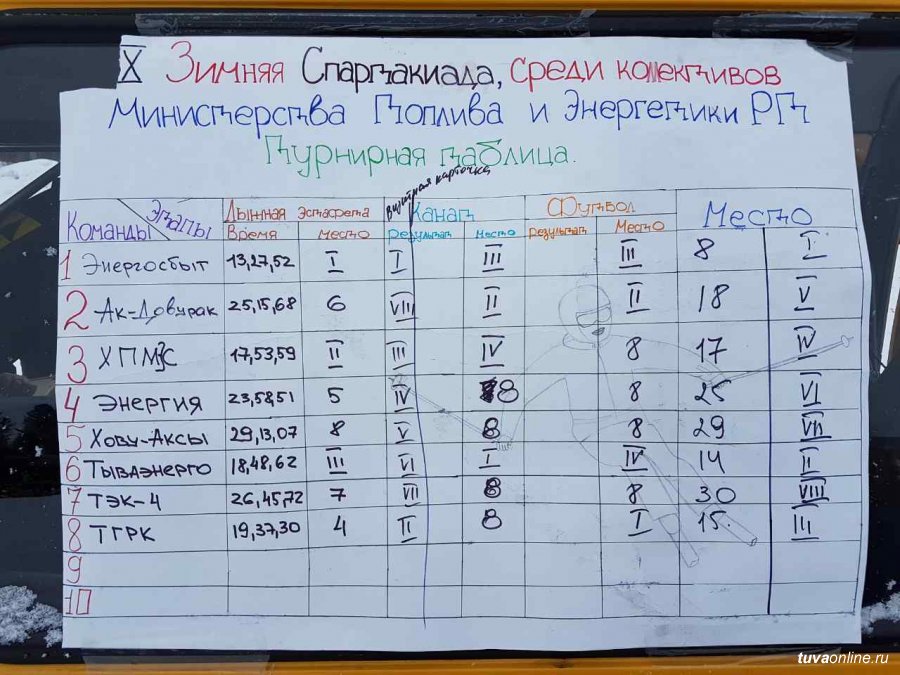 X Зимняя Спартакиада, среди колективов
Министерства Топлива и Энергетики РТ
Турнирная таблица.
Команды Этапы Лыжная Эстафета визитная карточка Канат Футбол Место
Время Место Результат Место Результат Место
1 Энергосбыт 13,27,52 I I III III 8 I
2 Ак-Довурак 25,15,68 6 VIII II II 18 V
3 ХПМЭС 17,53,59 II III IV 8 17 IV
4 Энергия 23,58,51 5 IV 8 8 25 VI
5 Хову-Аксы 29,13,07 8 V 8 8 29 VII
6 Тываэнерго 18,48,62 III VI I IV 14 II
7 ТЭК-4 26,45,72 7 VII 8 8 30 VIII
8 ТГРК 19,37,30 4 II 8 I 15. III
9
10
tuvaonline.ru